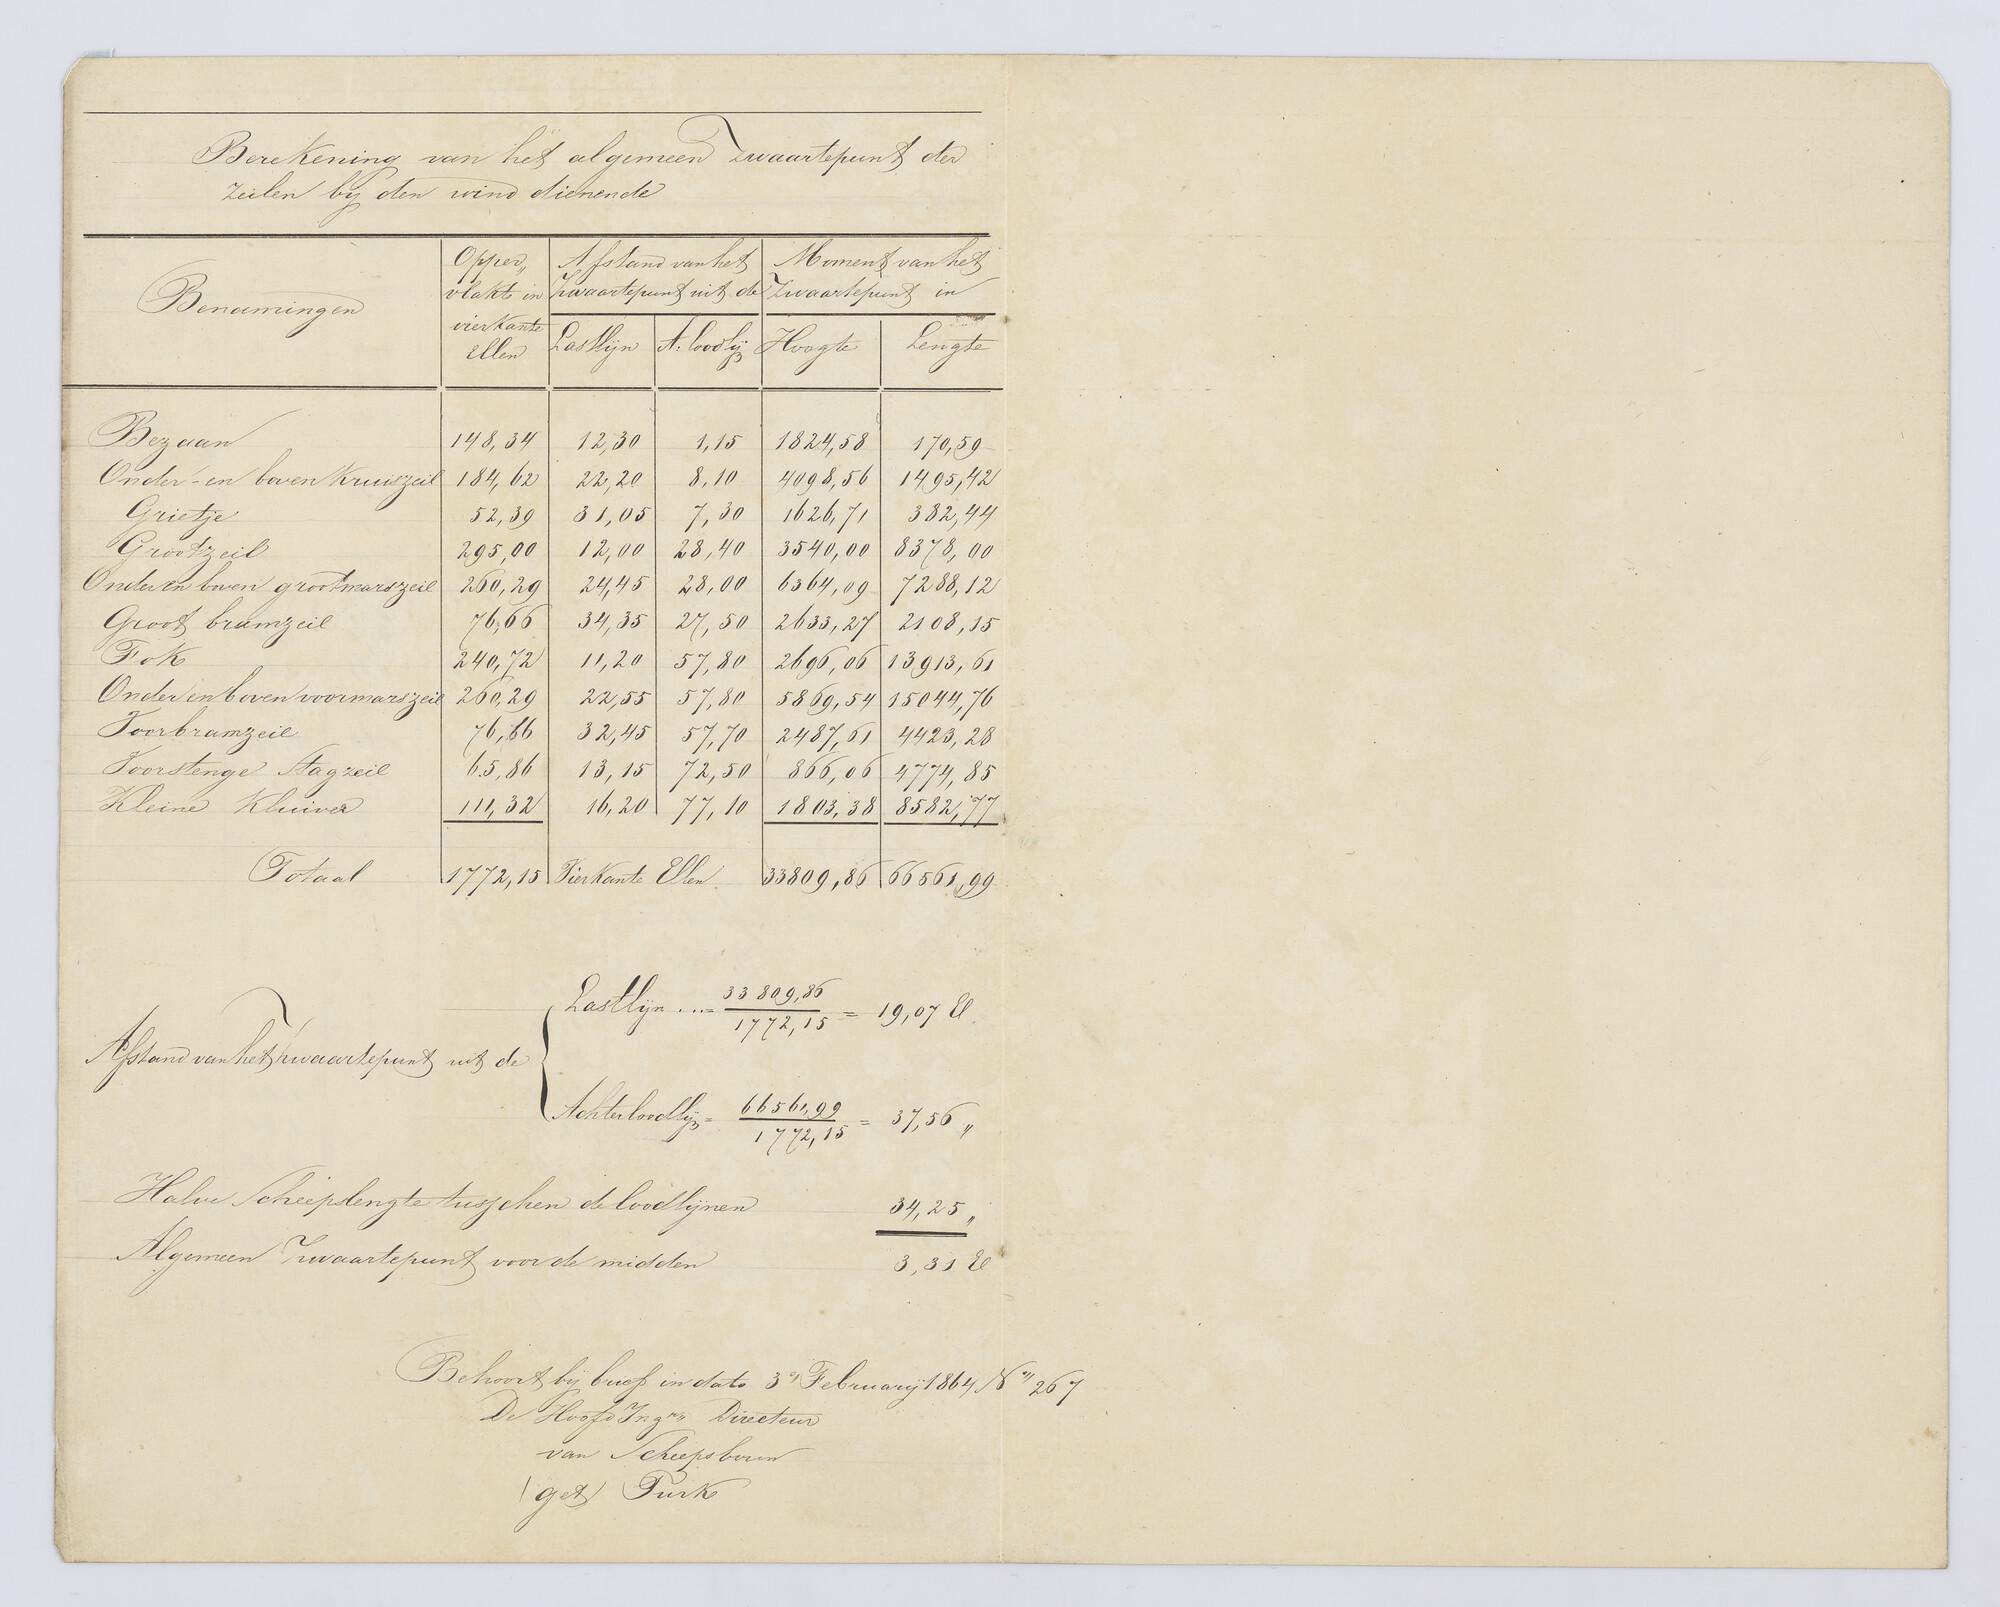 Berekening van het algemeen Zwaartepunt der
zeilen bij den wind dienende
Benamingen Opper„ Afstand van het Moment van het
vlakte in Zwaartepunt uit de Zwaartepunt in
vierkante
Ellen Lastlijn A. loodlijn Hoogte Lengte
Bezaan 148,34 12,30 1,15 1824,58 170,59
Onder- en boven Kruiszeil 184,62 22,20 8,10 4098,56 1495,42
Grietje 52,39 31,05 7,30 1626,71 382,44
Grootzeil 295,00 12,00 28,40 3540,00 8378,00
Onder en boven grootmarszeil 260,29 24,45 28,00 6364,09 7288,12
Groot bramzeil 76,66 34,35 27,50 2633,27 2108,15
Fok 240,72 11,20 57,80 2696,06 13913,61
Onder en boven voormarszeil 260,29 22,55 57,80 5869,54 15044,76
Voorbramzeil 76,66 32,45 57,70 2487,61 4423,28
Voorstenge Stagzeil 65,86 13,15 72,50 866,06 4774,85
Kleine Kluiver 111,32 16,20 77,10 1803,38 8582,77
Totaal 1772,15 Vierkante Ellen 33809,86 66561,99
Lastlijn ...= 33809,86 / 1772,15 = 19,07 El
Afstand van het Zwaartepunt uit de
Achterloodlijn = 66561,99 / 1772,15 = 37,56 „
Halve Scheepslengte tusschen de loodlijnen 34,25 „
Algemeen Zwaartepunt voor de midden 3,31 El
Behoort bij brief in dato 3en February 1864 No 267
De Hoofd Ingr Directeur
van Scheepsbouw
(get) Turk